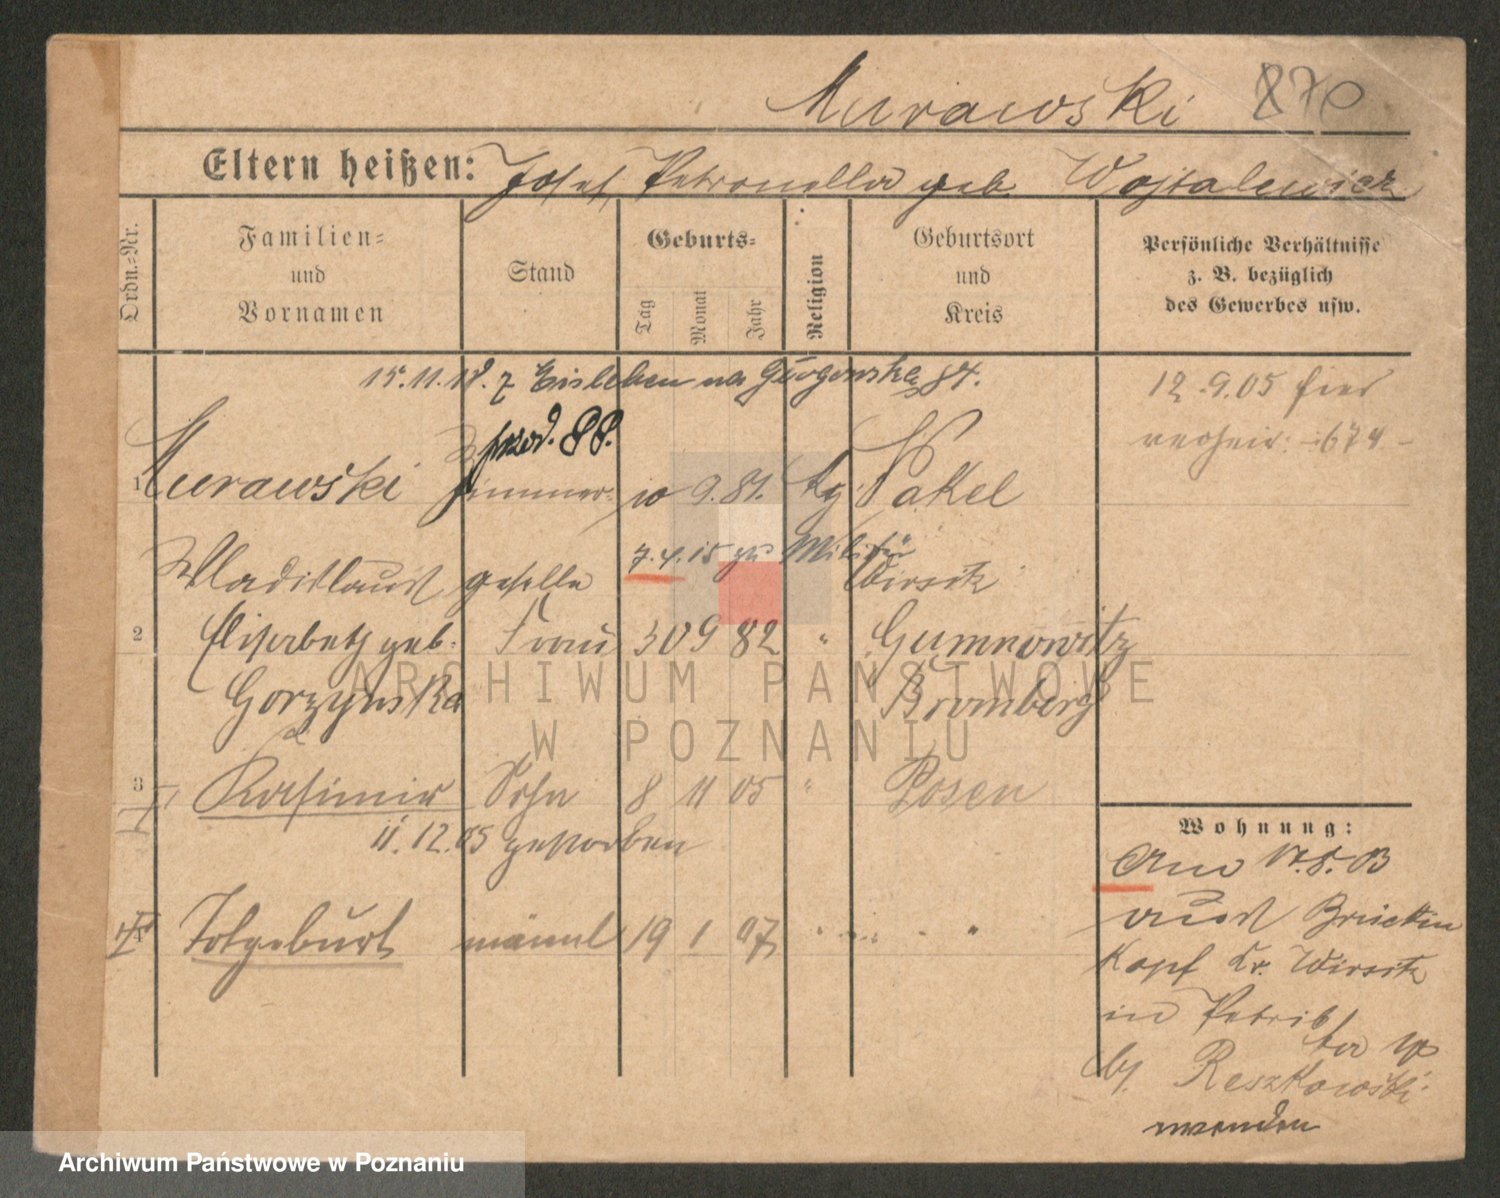 Murawski 870
Eltern heißen: Josef, Petronella geb. Wojtalewicz
Ordn.=Nr.
Familien=
und
Vornamen
Stand
Geburts=
Tag
Monat
Jahr
Religion
Geburtsort
und
Kreis
Persönliche Verhältnisse
z. B. bezüglich
des Gewerbes usw.
15.11.18. z Eisleben na 84.
12.9.05 hier
verheir. 674
88.
1 Murawski Zimmer- 10 9. 81. kg. Nakel
7.4.15 zu Militär
Wladislaus geselle Wirsitz
2 Elisabeth geb. Frau 30 9 82 " Gumnowitz
Gorzynska Bromberg
3 Kasimir Sohn 8 11 05 " Posen
11.12.05 gestorben
4 Totgeburt männl 19 1 07 " "
Wohnung:
Am 17.8.03
aus Brücken
Kopf Kr. Wirsitz
in Petrib
by. Reszkowski
wenden
ARCHIWUM PAŃSTWOWE
W POZNANIU
Archiwum Państwowe w Poznaniu